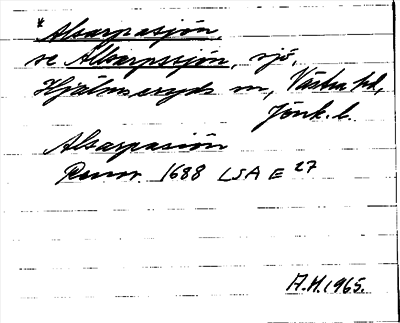 * Alsarpasjön
se Allsarpssjön, sjö,
Hjälmseryds sn, Västra hd,
Jönk. l.
Alsarpasiön
Renov. 1688 LSA E 27
A.H. 1965.